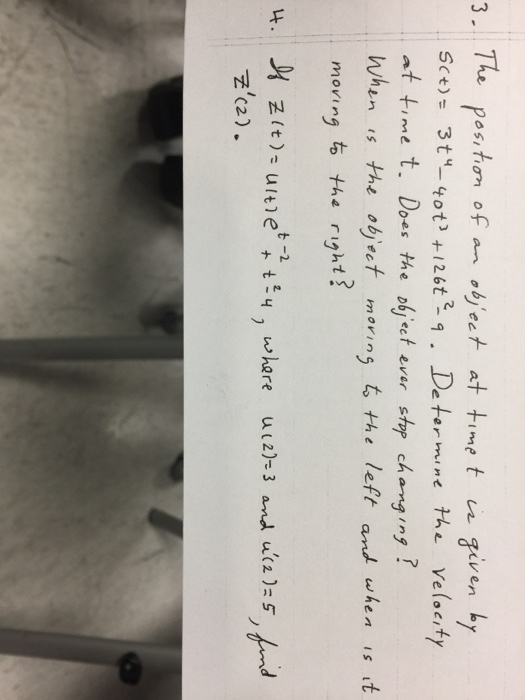 3. The position of an object at time t is given by
S(t) = 3t⁴ - 40t³ + 126t² - 9. Determine the velocity
at time t. Does the object ever stop changing?
When is the object moving to the left and when is it
moving to the right?
4. If z(t) = u(t)e^{t-2} + t² - 4, where u(2)=3 and u'(2)=5, find
z'(2).